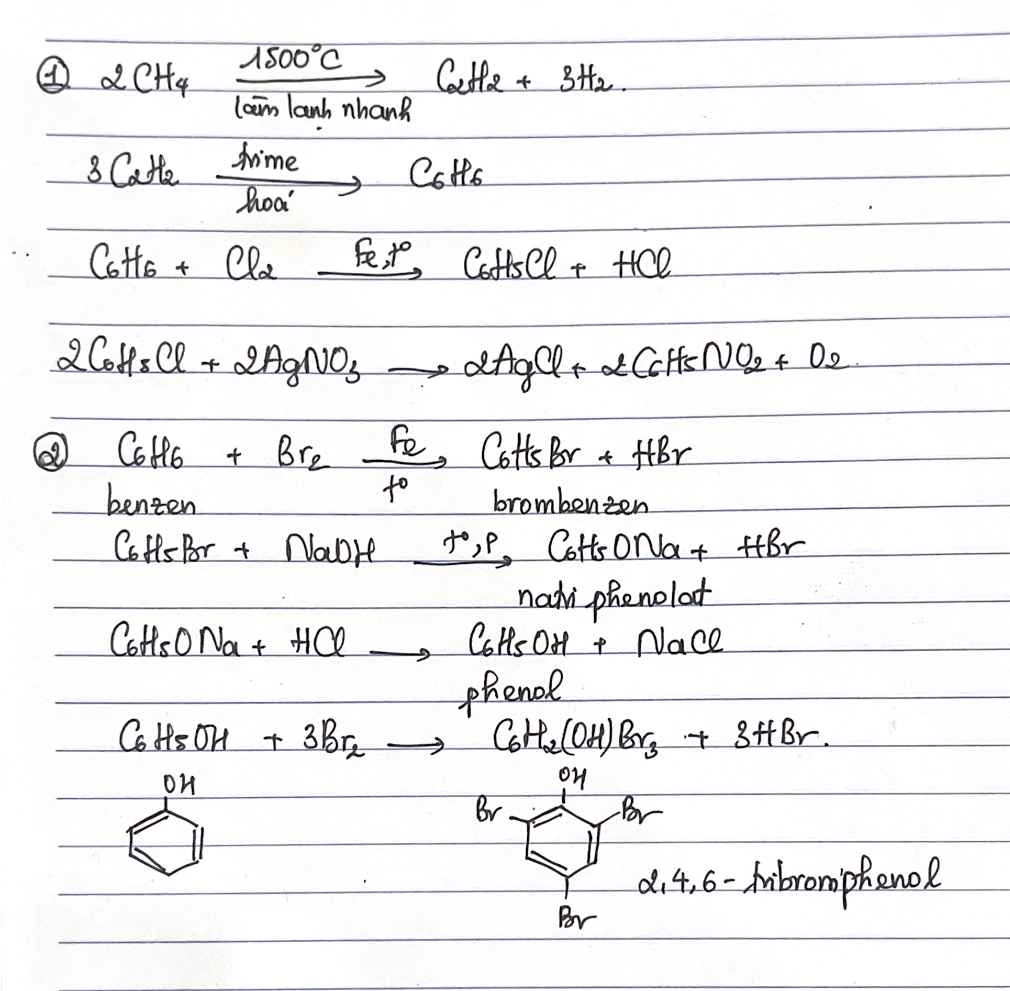 ① 2CH4 1500°C làm lạnh nhanh → C2H2 + 3H2.
3C2H2 trime hoá → C6H6
C6H6 + Cl2 Fe, t° → C6H5Cl + HCl
2C6H5Cl + 2AgNO3 → 2AgCl + 2C6H5NO2 + O2.
② C6H6 + Br2 Fe t° → C6H5Br + HBr
benzen brombenzen
C6H5Br + NaOH t°, P → C6H5ONa + HBr
natri phenolat
C6H5ONa + HCl → C6H5OH + NaCl
phenol
C6H5OH + 3Br2 → C6H2(OH)Br3 + 3HBr.
OH OH
Br Br
2,4,6 - tribromphenol
Br